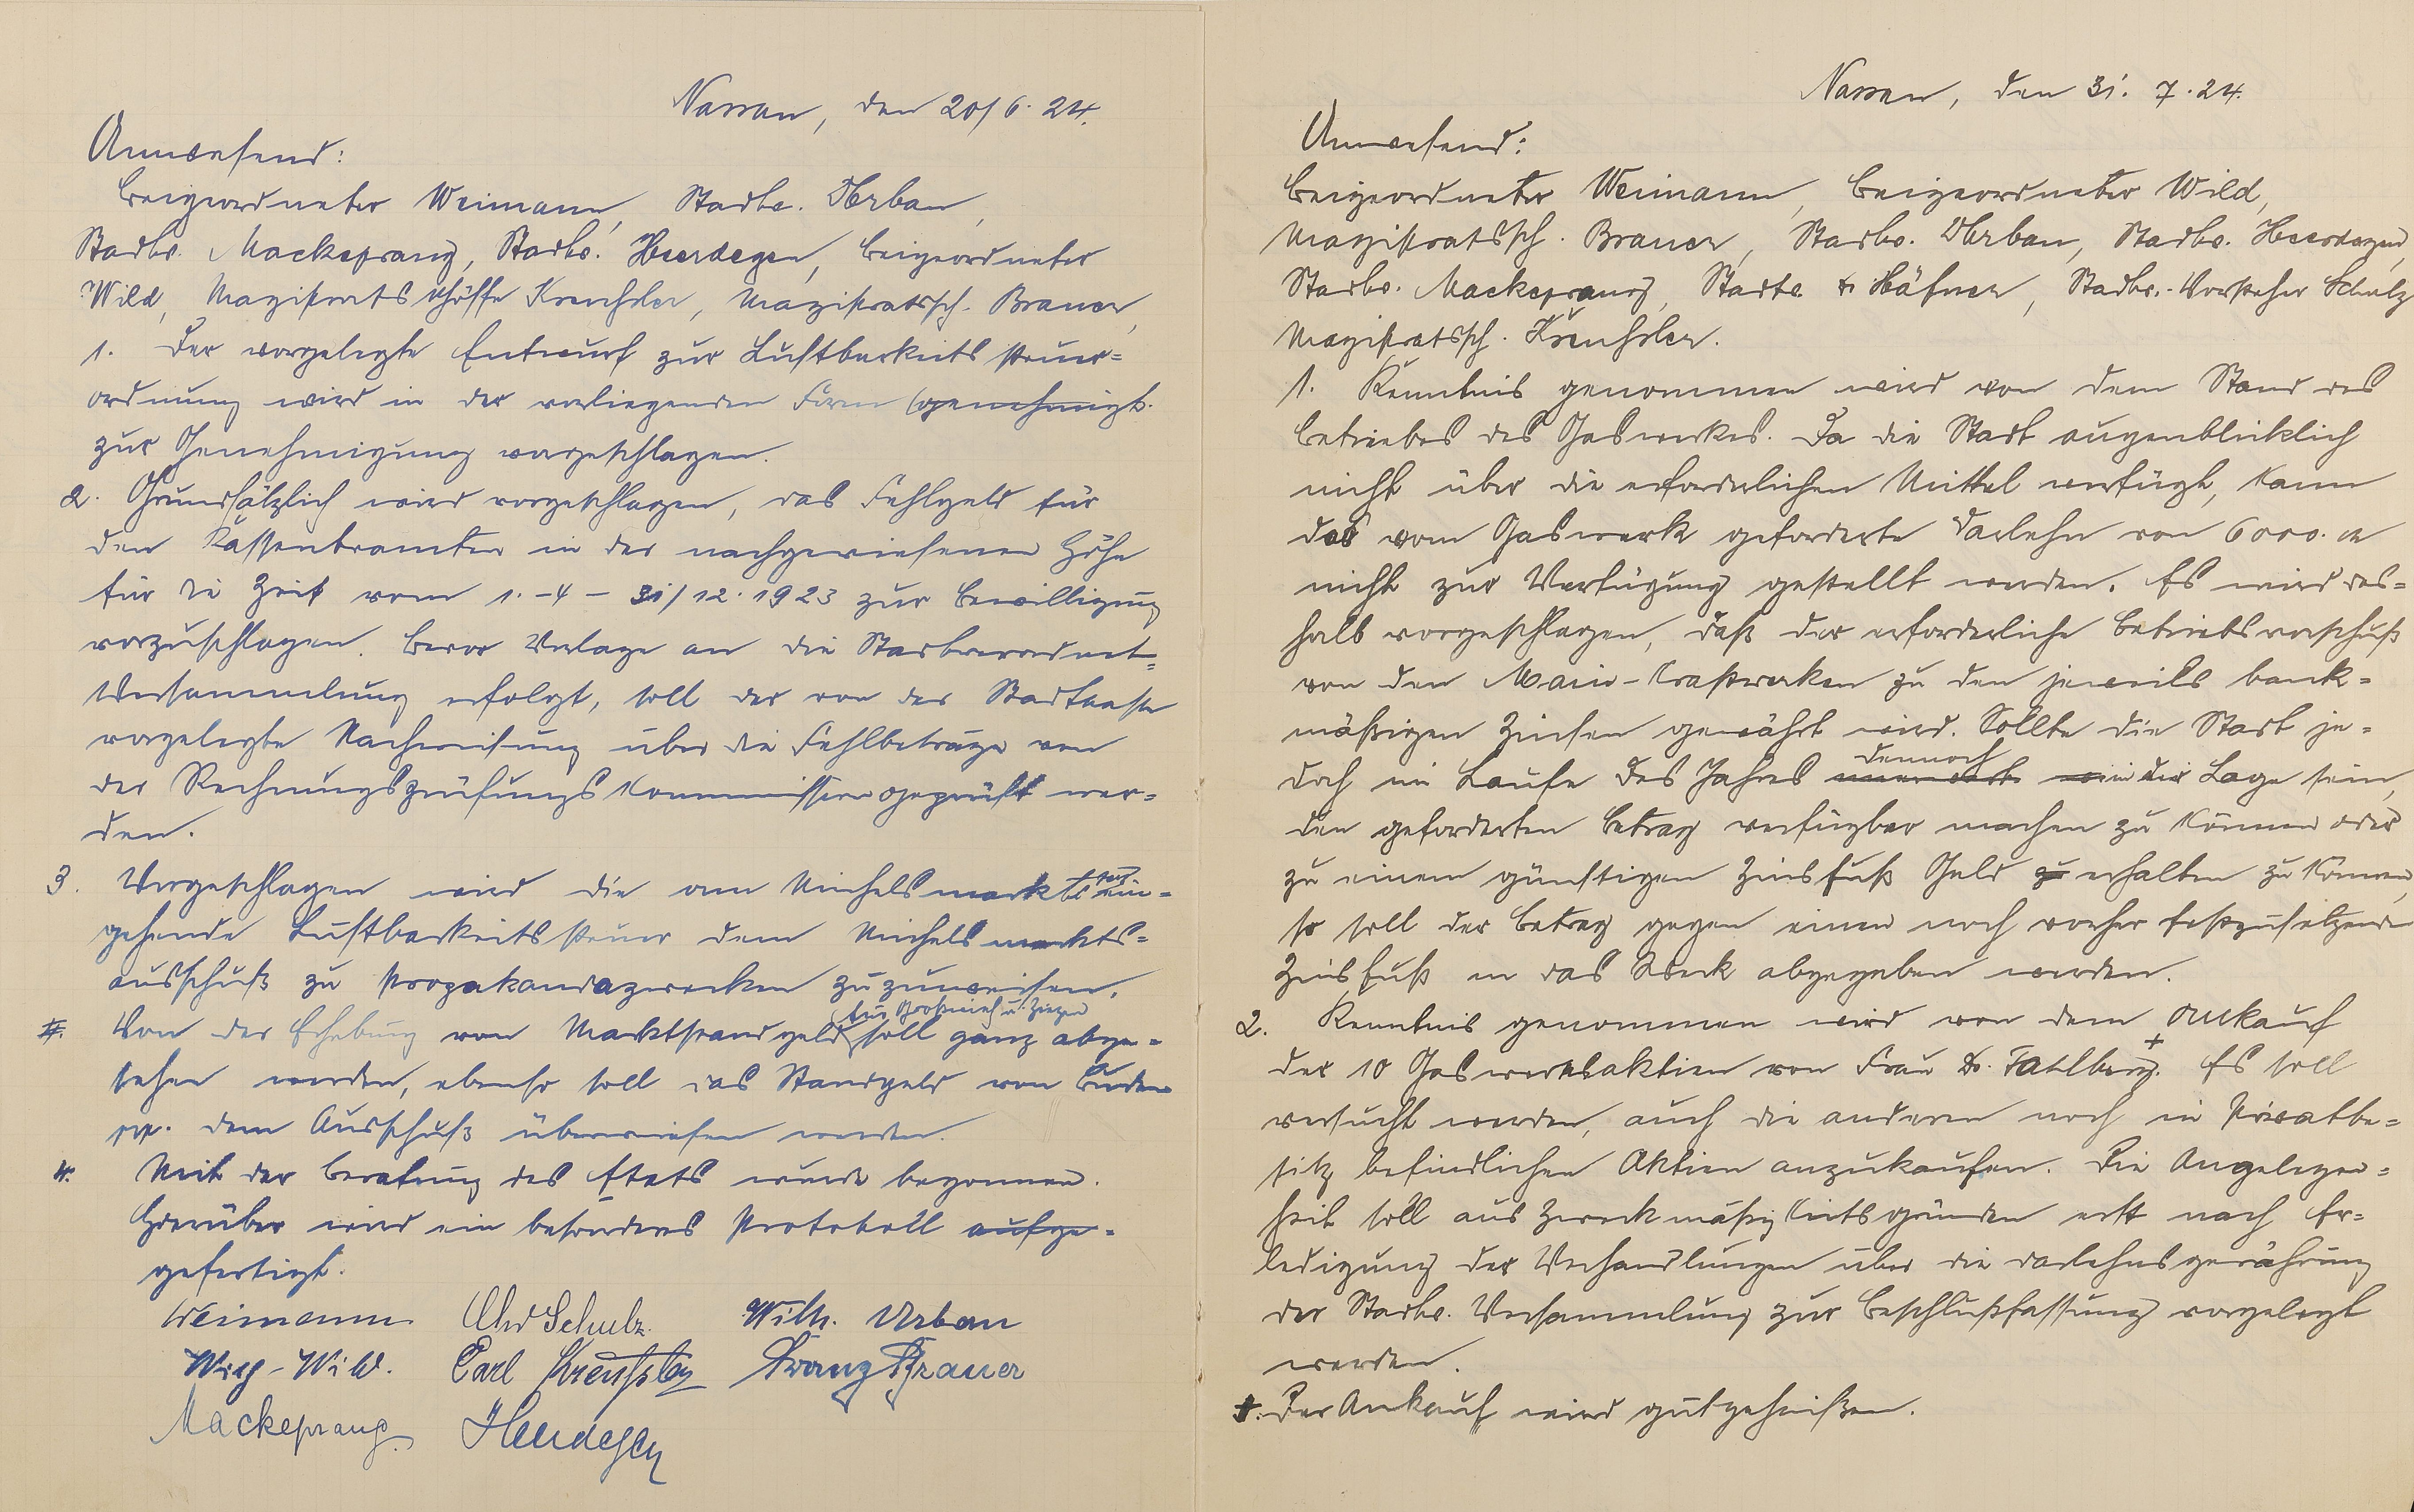 Nassau, den 20/6. 24.
Anwesend:
Beigeordneter Weimann, Stadtv. Urban,
Stadtv. Mackeprang, Stadtv. Heerdegen, Beigeordneter
Wild, Magistratsschöffe Kreuhsler, Magistratssch. Brauer,
1. Der vorgelegte Entwurf zur Lustbarkeitssteuer=
ordnung wird in der vorliegenden Form genehmigt.
zur Genehmigung vorgeschlagen.
2. Grundsätzlich wird vorgeschlagen, das Fehlgeld für
den Kassenbeamten in der nachgewiesenen Höhe
für die Zeit vom 1.-4 - 31/12. 1923 zur Bewilligung
vorzuschlagen. Bevor Vorlage an die Stadtverordnet=
Versammlung erfolgt, soll der von der Stadtkasse
vorgelegte Nachweisung über die Fehlbeträge von
der Rechnungsprüfungskommission geprüft wer=
den.
3. Vorgeschlagen wird die am Michelsmarkt ein=
gehende Lustbarkeitssteuer dem Michelsmarkts=
ausschuß zu Propakandazwecken zuzuweisen.
für Großvieh u. Ziegen
Von der Erhebung von Marktstandgeld soll ganz abge=
sehen werden, ebenso soll das Standgeld von Buden
pp. dem Ausschuß überwiesen werden.
4. Mit der Beratung des Etats wurde begonnen.
Hierüber wird ein besonderes Protokoll aufge=
gefertigt.
Weimann Chr Schulz Wilh. Urban
Wild. Carl Kreuhsler Franz Brauer
Mackeprang Heerdegen
Nassau, den 31. 7. 24.
Anwesend:
Beigeordneter Weimann, Beigeordneter Wild,
Magistratssch. Brauer, Stadtv. Urban, Stadtv. Heerdegen,
Stadtv. Mackeprang, Stadtv. Häfner, Stadtv.-Vorsteher Schulz
Magistratssch. Kreuhsler.
1. Kenntnis genommen wird von dem Stand des
Betriebes des Gaswerkes. Da die Stadt augenblicklich
nicht über die erforderlichen Mittel verfügt, kann
das vom Gaswerk geforderte Darlehn von 6000. M
nicht zur Verfügung gestellt werden. Es wird des=
halb vorgeschlagen, daß der erforderliche Betriebsvorschuß
von den Main-Kraftwerken zu den jeweils bank=
mäßigen Zinsen gewährt wird. Sollte die Stadt je=
dennoch
doch im Laufe des Jahres in der Lage sein,
den geforderten Betrag verfügbar machen zu können oder
zu einem günstigen Zinsfuß Geld zu erhalten zu können,
so soll der Betrag gegen einen noch vorher festzusetzenden
Zinsfuß an das Werk abgegeben werden.
2. Kenntnis genommen wird von dem Ankauf
der 10 Gaswerksaktien von Frau Dr. Fahlberg. + Es soll
versucht werden, auch die anderen noch in Privatbe=
sitz befindlichen Aktien anzukaufen. Die Angelegen=
heit soll aus Zweckmäßigkeitsgründen erst nach Er=
ledigung der Verhandlungen über die Darlehnsgewährung
der Stadtv. Versammlung zur Beschlußfassung vorgelegt
werden.
+. Der Ankauf wird gutgeheißen.